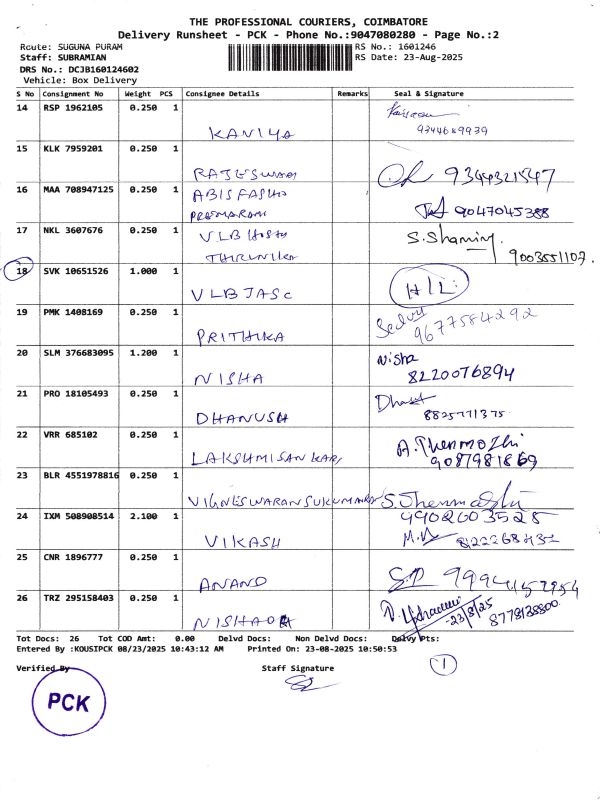 THE PROFESSIONAL COURIERS, COIMBATORE
Delivery Runsheet - PCK - Phone No.:9047080280 - Page No.:2
Route: SUGUNA PURAM
RS No.: 1601246
Staff: SUBRAMIAN
RS Date: 23-Aug-2025
DRS No.: DCJB160124602
Vehicle: Box Delivery
S No Consignment No Weight PCS Consignee Details Remarks Seal & Signature
14 RSP 1962105 0.250 1
KANIYA 9344689939
15 KLK 7959201 0.250 1
RAJESWARI 9344321547
16 MAA 708947125 0.250 1
9047045388
17 NKL 3607676 0.250 1 VLB S.Shamim
9003551107
18 SVK 10651526 1.000 1
VLB JASC
19 PMK 1408169 0.250 1
PRITHIKA Selvi 9677584292
20 SLM 376683095 1.200 1 Nisha
NISHA 8220076894
21 PRO 18105493 0.250 1
DHANUSH 8825771375
22 VRR 685102 0.250 1 A.Thenmozhi
LAKSHMISANKAR 9087981869
23 BLR 4551978816 0.250 1
VIGNESWARANSUKUMAR
24 IXM 508908514 2.100 1 9902003528
VIKASH
25 CNR 1896777 0.250 1
ANAND S.P
26 TRZ 295158403 0.250 1
23/8/25 8778138800
Tot Docs: 26 Tot COD Amt: 0.00 Delvd Docs: Non Delvd Docs: Delvy Pts:
Entered By :KOUSIPCK 08/23/2025 10:43:12 AM Printed On: 23-08-2025 10:50:53
1
Verified By Staff Signature
PCK